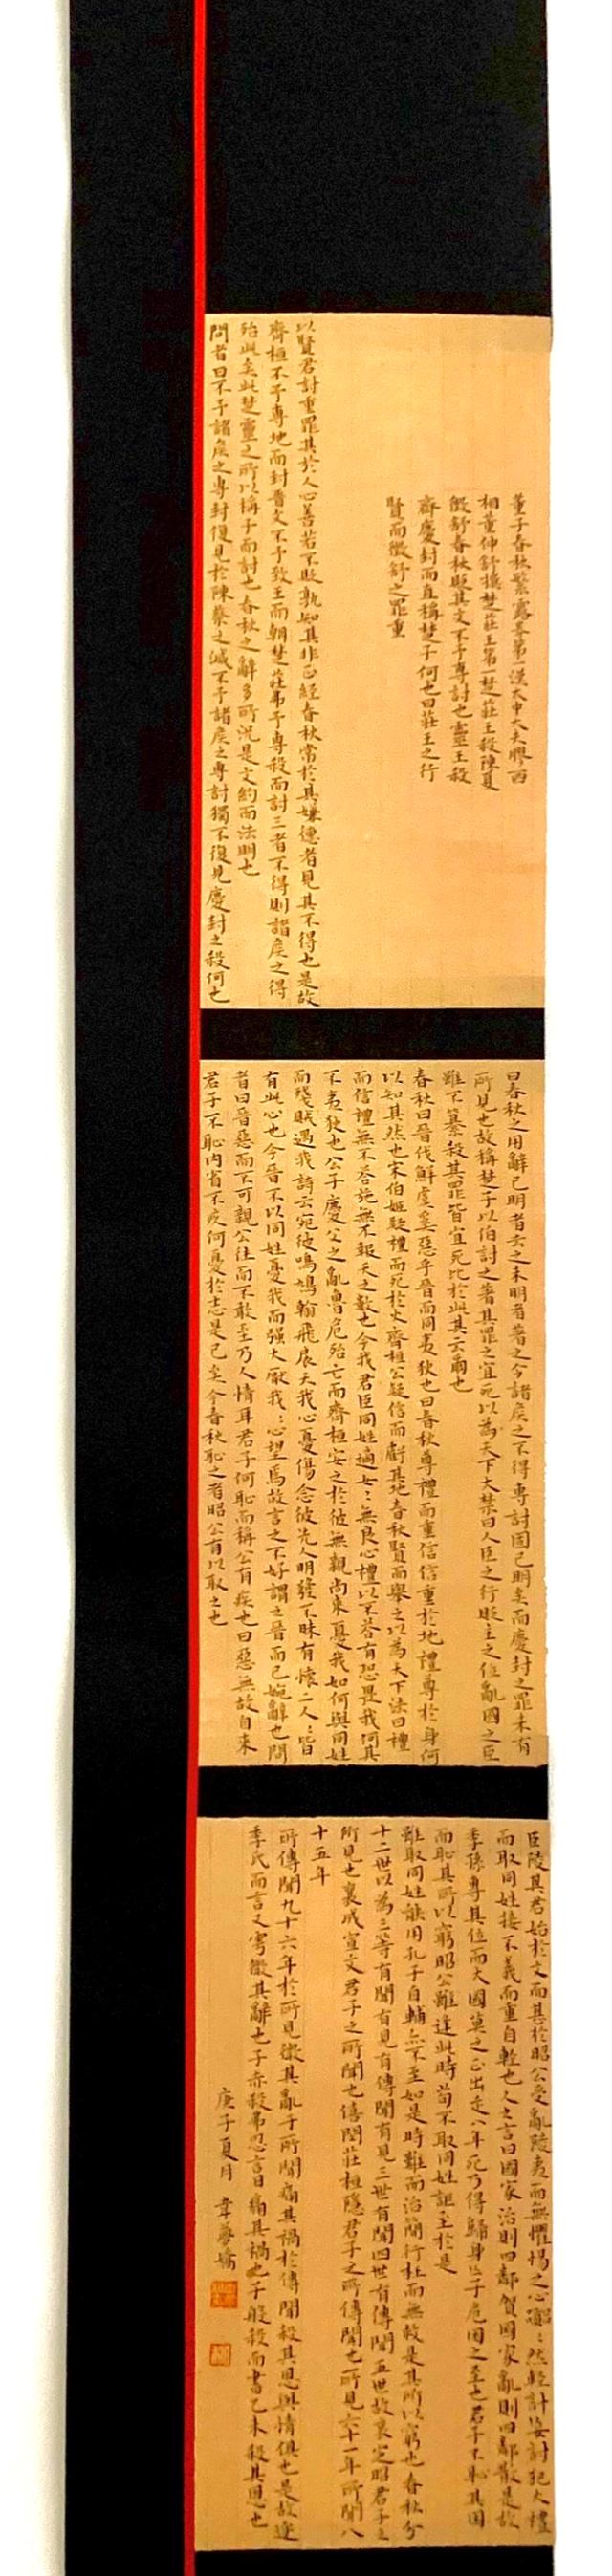 董子春秋繁露卷第一漢太中大夫膠西
相董仲舒撰楚莊王第一楚莊王殺陳夏
徵舒春秋貶其文不予專討也靈王殺
齊慶封而直稱楚子何也曰莊王之行
賢而徵舒之罪重
以賢君討重罪其於人心善若不貶孰知其非正經春秋常於其嫌德者見其不得也是故
齊桓不予專地而封晋文不予致王而朝楚莊弗予專殺而討三者不得則諸矦之得
殆此矣此楚靈之所以稱子而討也春秋之辭多所況是文約而法明也
問者曰不予諸矦之專封復見於陳蔡之滅不予諸矦之專討獨不復見慶封之殺何也
曰春秋之用辭已明者去之未明者著之今諸矦之不得專討固已明矣而慶封之罪未有
所見也故稱楚子以伯討之著其罪之宜死以為天下大禁曰人臣之行貶主之位亂國之臣
雖不篡殺其罪皆宜死比於此其云爾也
春秋曰晉伐鮮虞奚惡乎晉而同夷狄也曰春秋尊禮而重信信重於地禮尊於身何
以知其然也宋伯姬疑禮而死於火齊桓公疑信而虧其地春秋賢而舉之以為天下法曰禮
而信禮無不荅施無不報天之數也今我君臣同姓適女：無良心禮以不荅有恐畏我何其
不夷狄也公子慶父之亂魯危殆亡而齊桓安之於彼無親尚來憂我如何與同姓
而殘賊遇我詩云宛彼鳴鳩翰飛戾天我心憂傷念彼先人明發不昧有懷二人：皆
有此心也今晉不以同姓憂我而强大厭我：心望焉故言之不好謂之晉而已婉辭也問
者曰晉惡而不可親公往而不敢至乃人情耳君子何恥而稱公有疾也曰惡無故自來
君子不恥內省不疚何憂於志是已矣今春秋恥之者昭公有以取之也
臣陵其君始於文而甚於昭公受亂陵夷而無懼惕之心囂：然輕計妄討犯大禮
而取同姓接不義而重自輕也人之言曰國家治則四鄰賀國家亂則四鄰散是故
季孫專其位而大國莫之正出走八年死乃得歸身亡子危困之至也君子不恥其困
而恥其所以窮昭公雖逢此時苟不取同姓詎至於是
雖取同姓能用孔子自輔亦不至如是時難而治簡行枉而無救是其所以窮也春秋分
十二世以為三等有聞有見有傳聞有見三世有聞四世有傳聞五世故哀定昭君子之
所見也襄成宣文君子之所聞也僖閔莊桓隱君子之所傳聞也所見六十一年所聞八
十五年
所傳聞九十六年於所見微其亂于所聞痛其禍於傳聞殺其恩與情俱也是故逐
季氏而言又雩微其辭也子赤殺弗忍言日痛其禍也子般殺而書乙未殺其恩也
庚子夏月